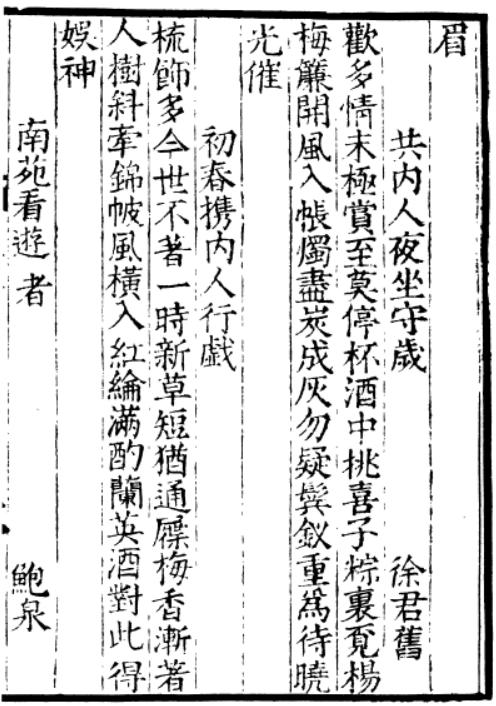 眉
共内人夜坐守歲 徐君舊
歡多情未極賞至莫停杯酒中挑喜子粽裏覔楊
梅簾開風入帳燭盡炭成灰勿疑鬂釵重爲待曉
光催
初春携内人行戯
梳飾多今世不著一時新草短猶通屧梅香漸著
人樹斜牽錦帔風橫入紅綸滿酌蘭英酒對此得
娛神
南苑看遊者 鮑泉